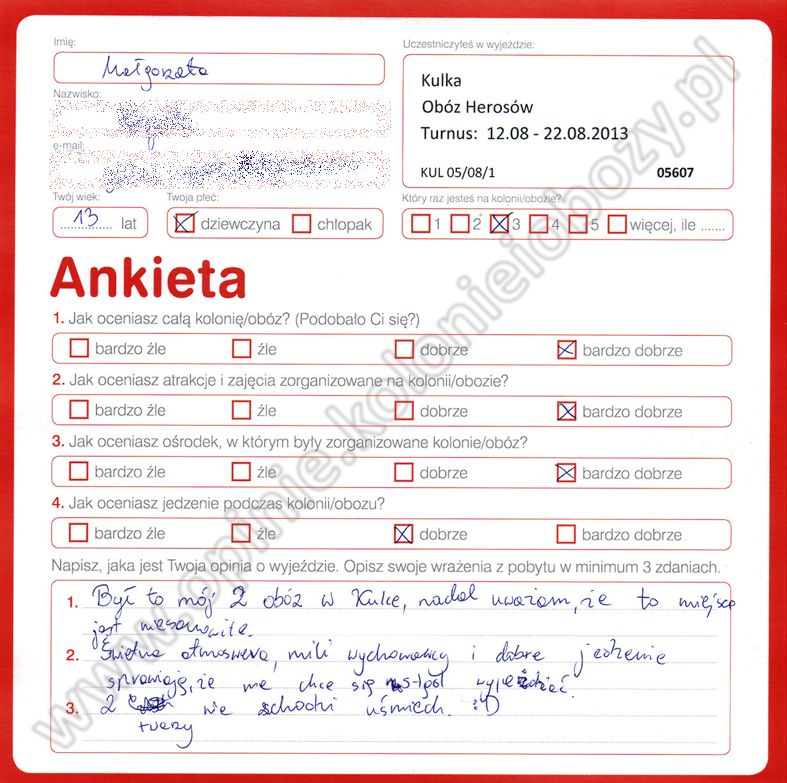 Imię:
Małgorzata
Uczestniczyłeś w wyjeździe:
Kulka
Obóz Herosów
Turnus: 12.08 - 22.08.2013
KUL 05/08/1 05607
Nazwisko:
e-mail:
Twój wiek:
13 lat
Twoja płeć:
dziewczyna chłopak
Który raz jesteś na kolonii/obozie?
1 2 3 4 5 więcej, ile .......
Ankieta
1. Jak oceniasz całą kolonię/obóz? (Podobało Ci się?)
bardzo źle źle dobrze bardzo dobrze
2. Jak oceniasz atrakcje i zajęcia zorganizowane na kolonii/obozie?
bardzo źle źle dobrze bardzo dobrze
3. Jak oceniasz ośrodek, w którym były zorganizowane kolonie/obóz?
bardzo źle źle dobrze bardzo dobrze
4. Jak oceniasz jedzenie podczas kolonii/obozu?
bardzo źle źle dobrze bardzo dobrze
Napisz, jaka jest Twoja opinia o wyjeździe. Opisz swoje wrażenia z pobytu w minimum 3 zdaniach.
1. Był to mój 2 obóz w Kulce, nadal uważam, że to miejsce
jest niesamowite.
2. Świetna atmoswera, mili wychowawcy i dobre jedzenie
sprawiają, że nie chce się stąd wyjeżdżać.
3. Z twarzy nie schodzi uśmiech. :D
www.opinie.kolonieiobozy.pl